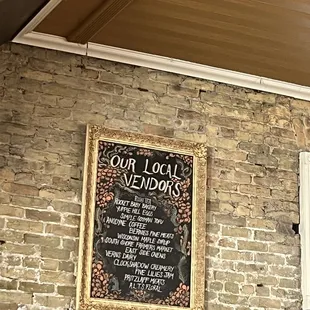 OUR LOCAL
VENDORS
ROCKET BABY BAKERY
YUPPIE HILL EGGS
SIMPLE SOYMAN TOFU
ANODYNE COFFEE
BERNIE'S FINE MEATS
WISCONSIN MAPLE SYRUP
SOUTH SHORE FARMERS MARKET
EAST SIDE OVENS
VERNS DAIRY
CLOCK SHADOW CREAMERY
PINE LILIES JAM
PATZLAFF MEATS
FLORAL